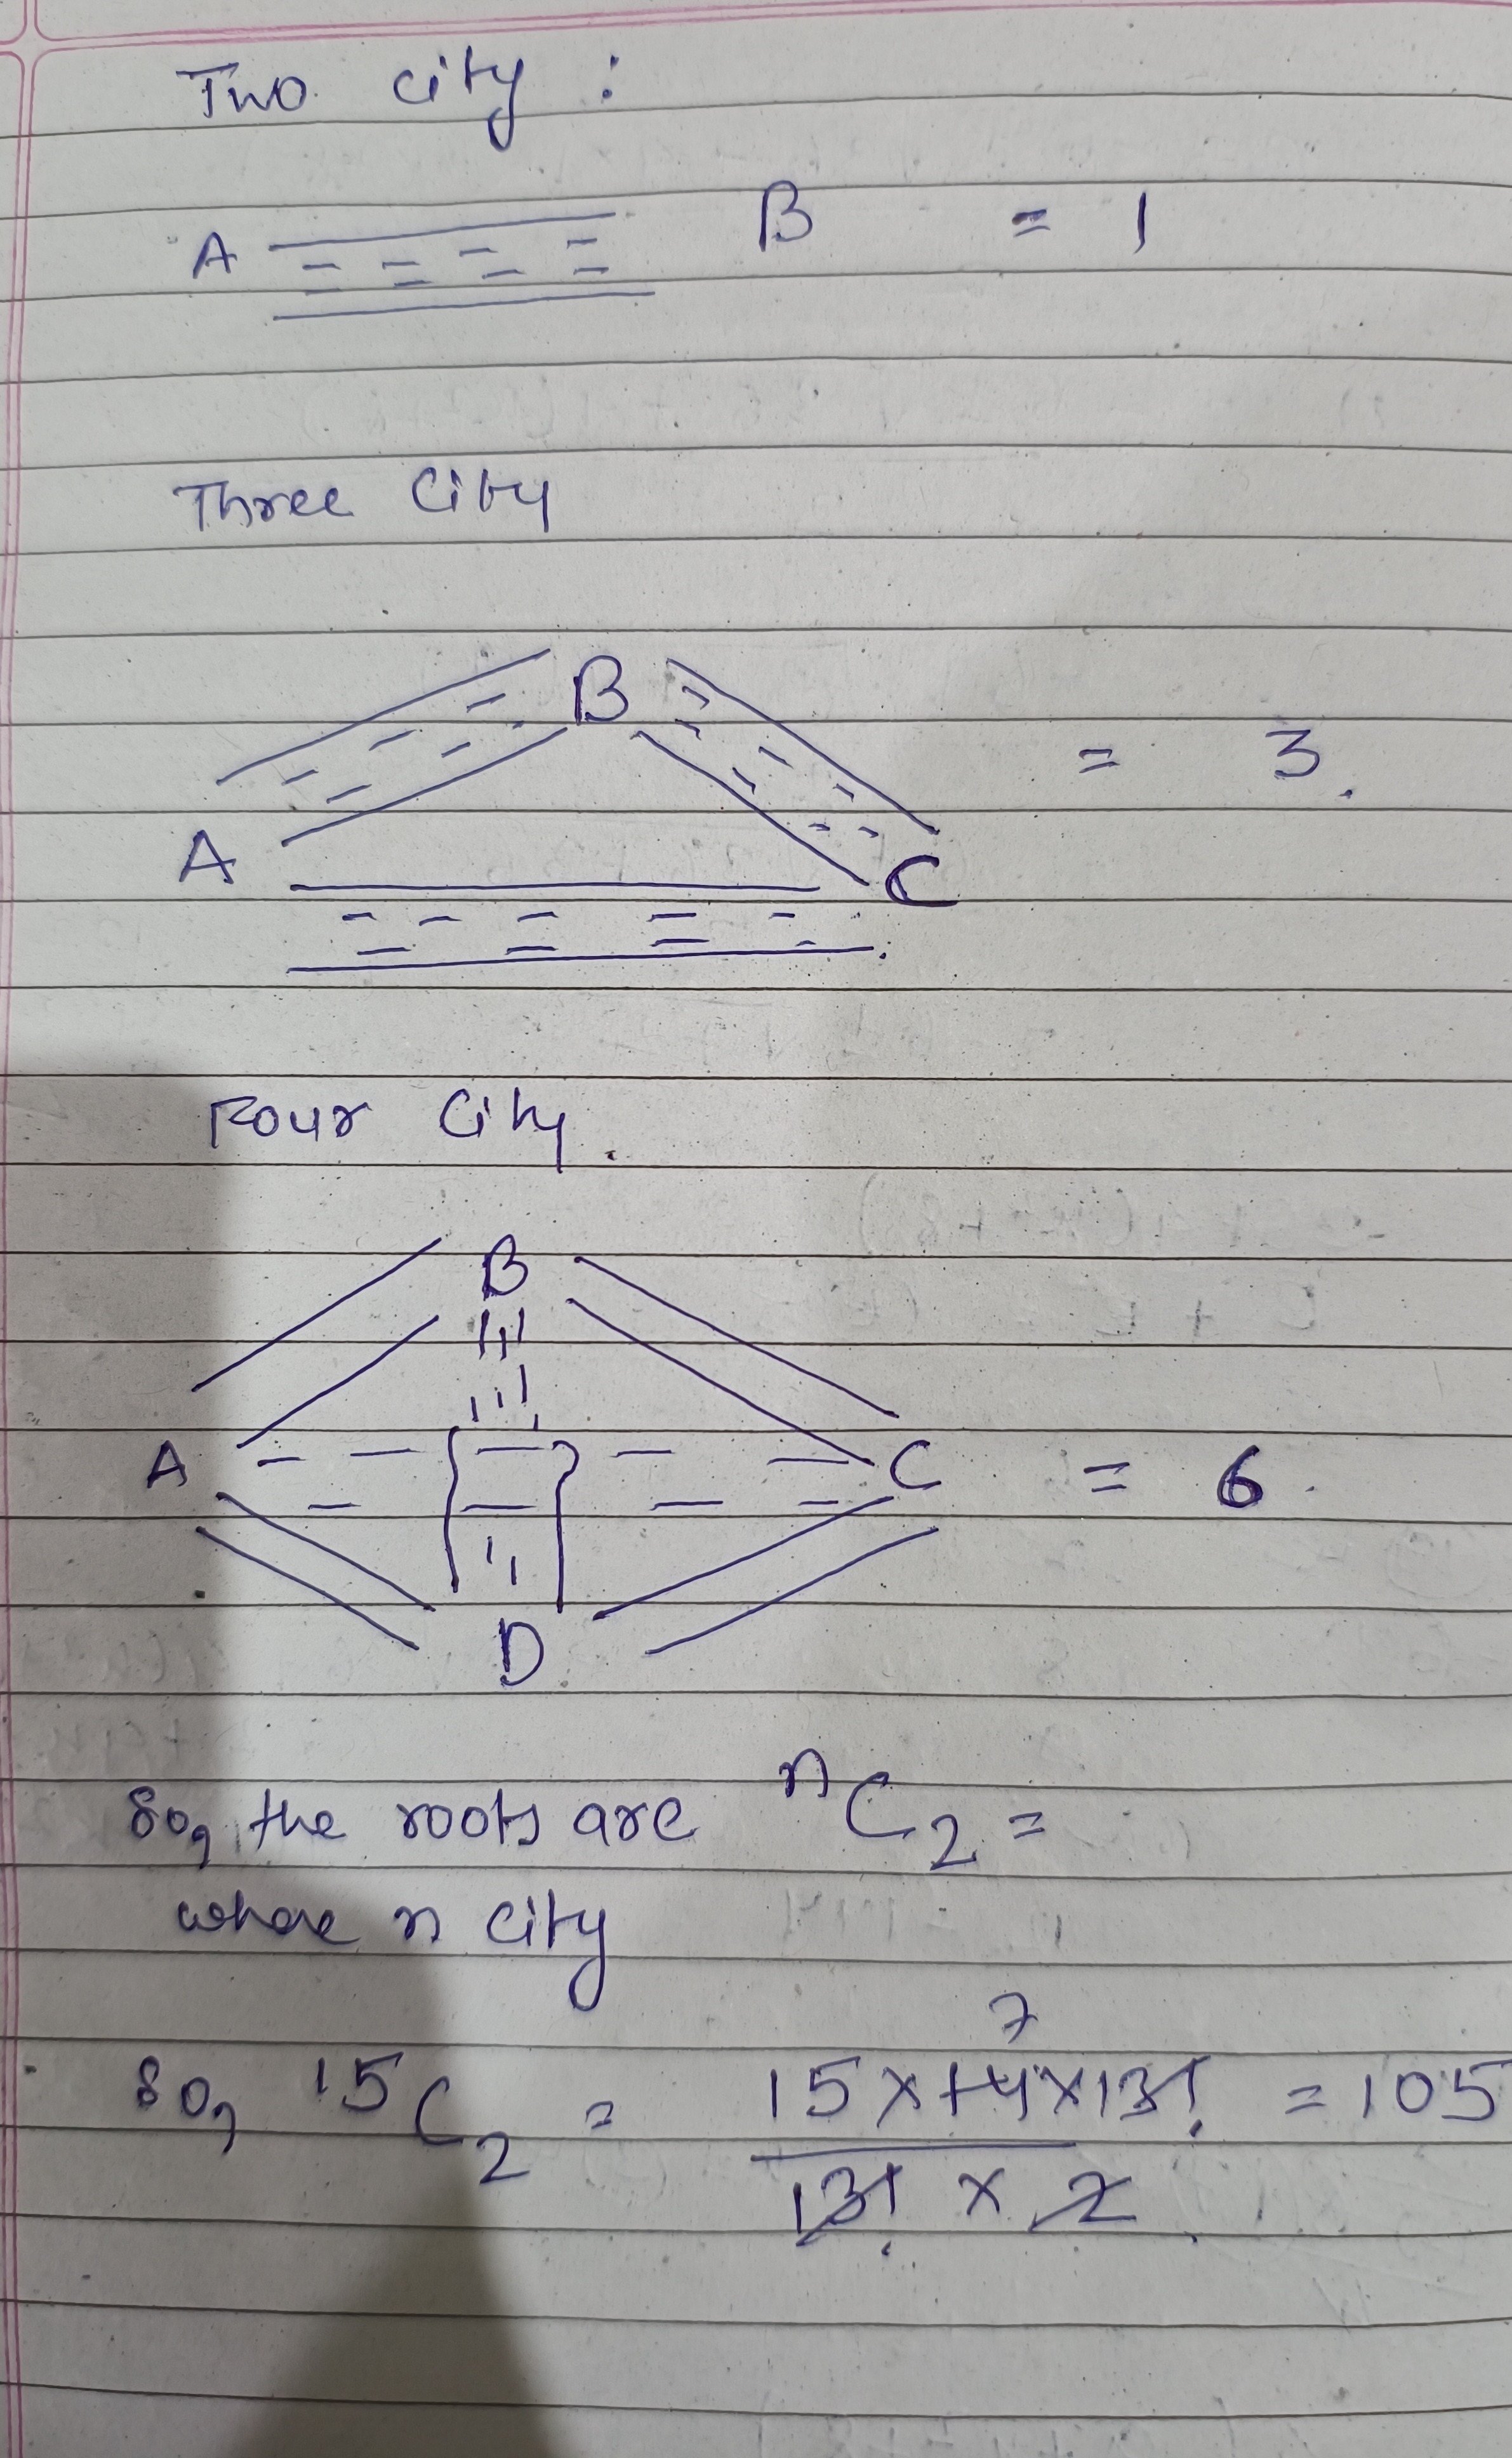 Two city :
A B = 1
Three City
B
= 3.
A
C
Four City.
B
A C = 6.
D
So, the roots are ⁿC₂ =
where n city
7
So, ¹⁵C₂ = 15 x 14 x 13! = 105
13! x 2